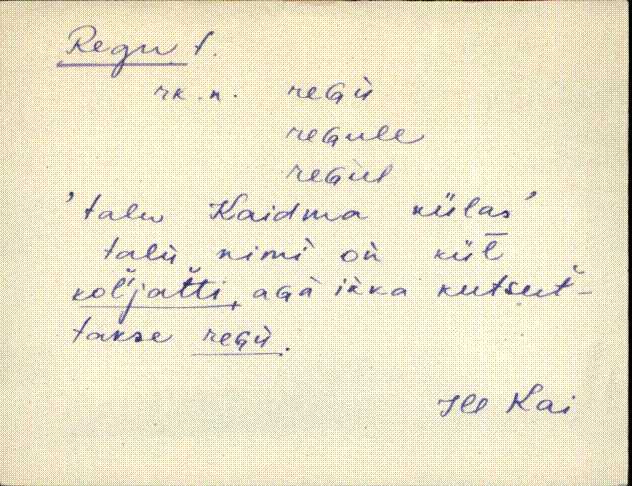 Regu t.
rk.n. reGù
reGulle
reGùl
'talu Kaidma külas'
talù nimì oǹ küĺ̄
kol'jatti, aGà ikka kutsut-
takse reGù.
Kai